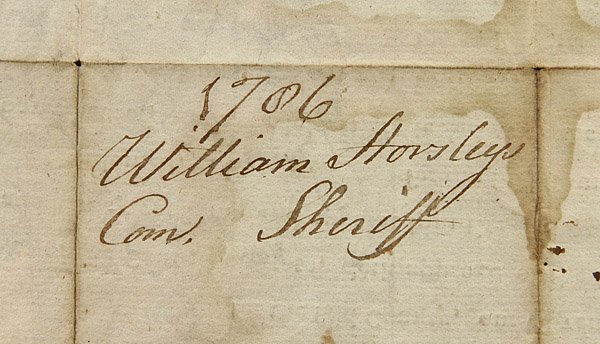 1786
William Horsleys
Com. Sheriff